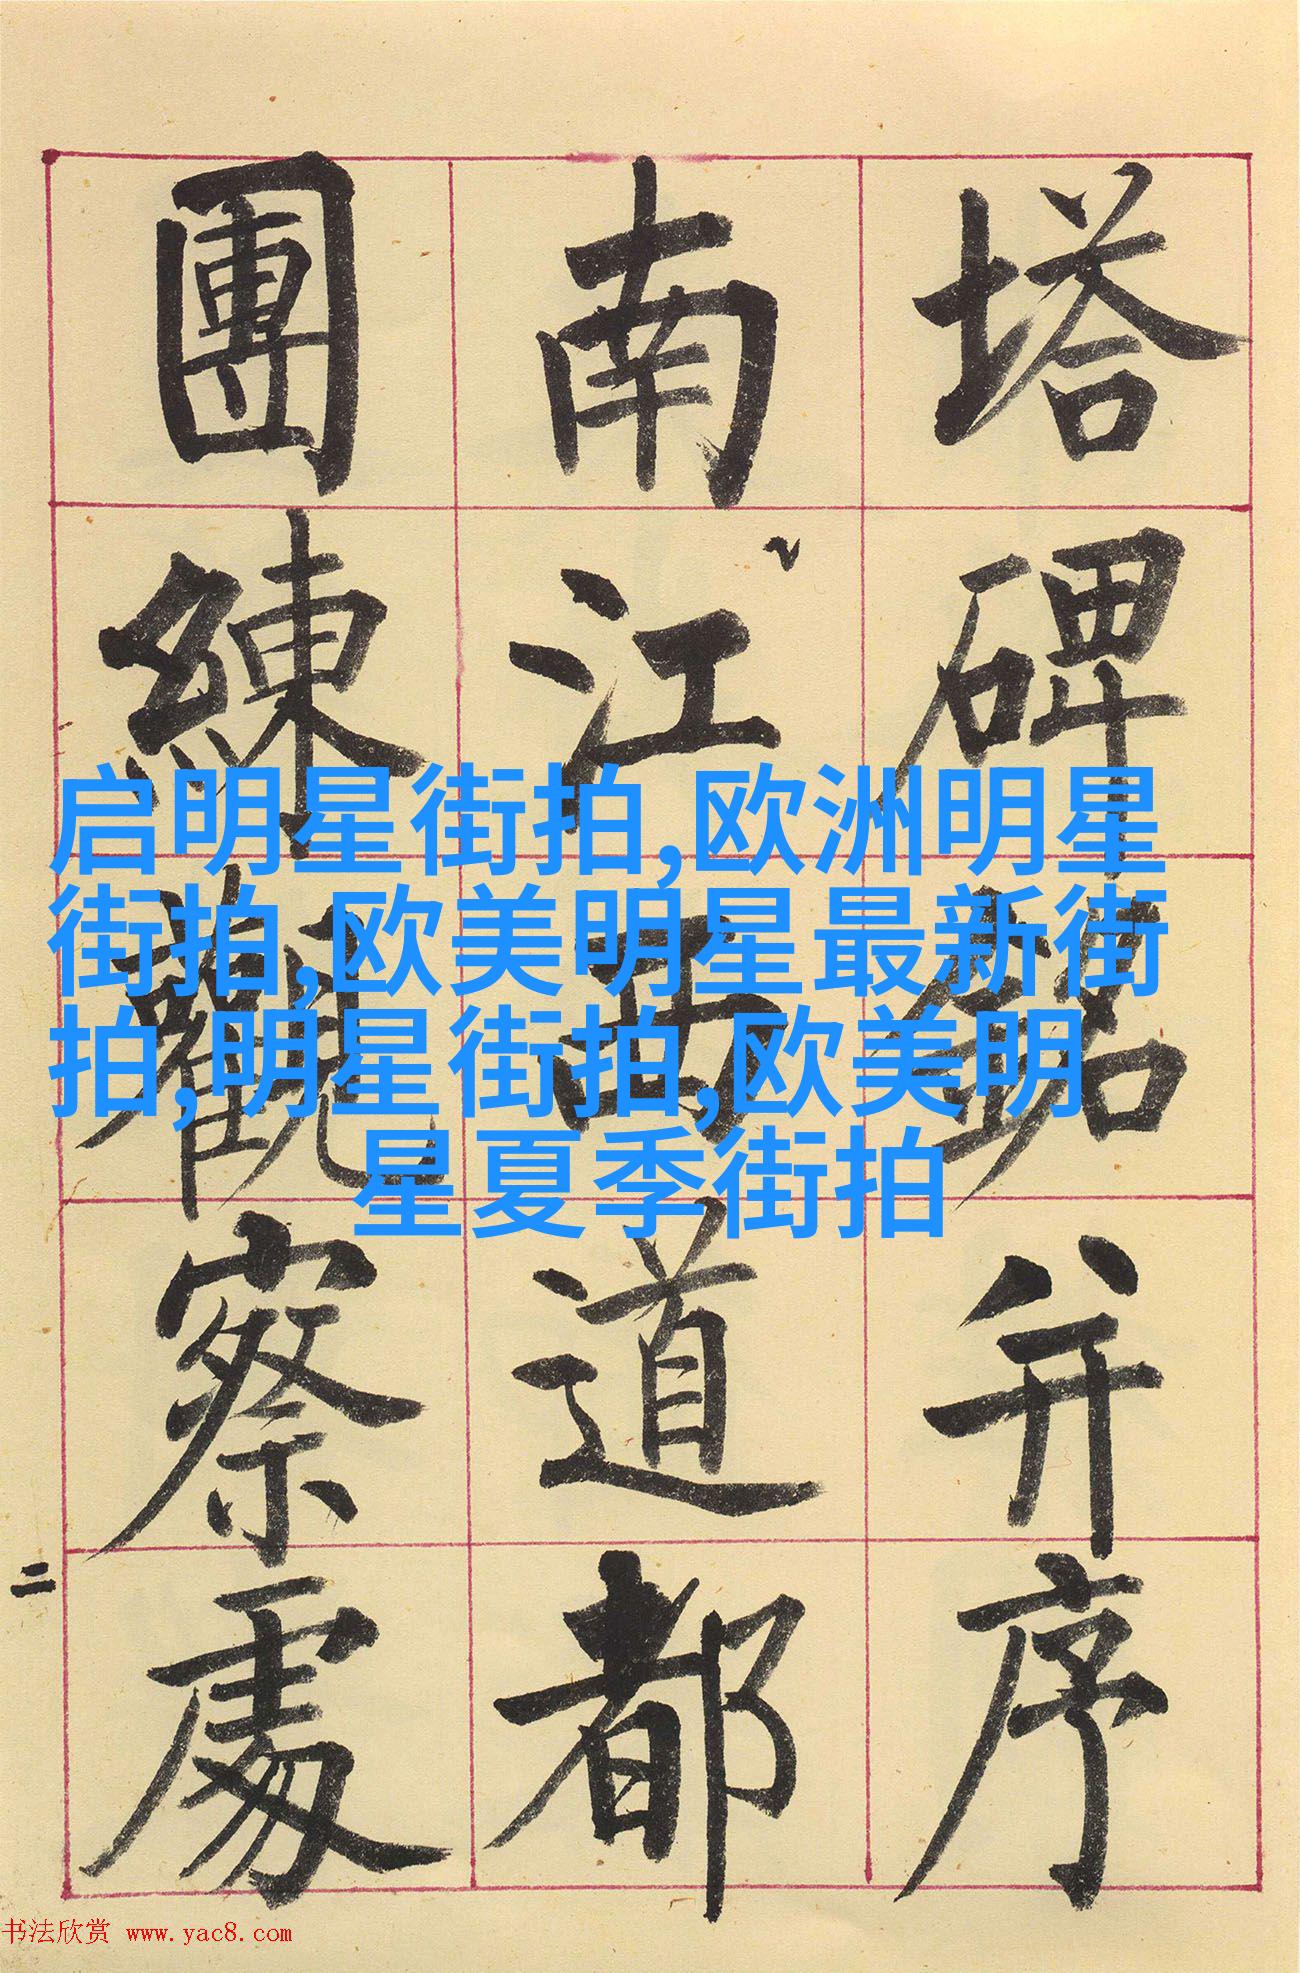 塔碑銘并序
南江西道都
團練觀察處
二
启明星街拍,欧洲明星
街拍,欧美明星最新街
拍,明星街拍,欧美明
星夏季街拍
书法欣赏 www.yac8.com